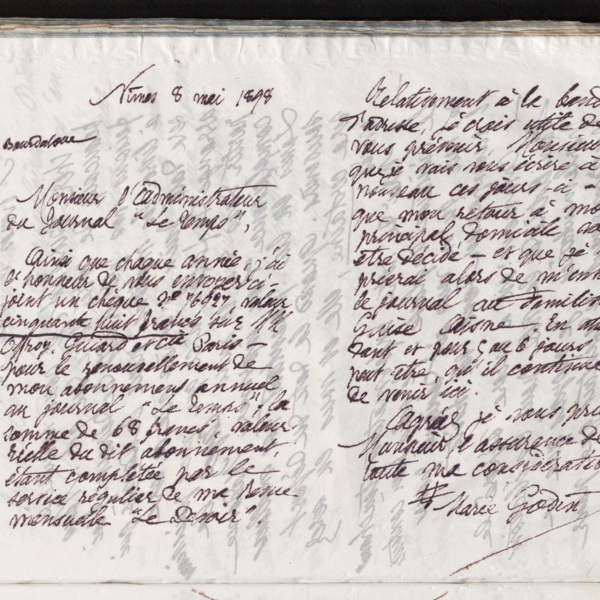 Nimes 8 mai 1898
Bourdaloue
Monsieur l'administrateur
du Journal "Le Temps",
Ainsi que chaque année, j'ai
l'honneur de vous envoyer ci-
joint un chèque N° 76697, valeur
cinquante huit francs sur
Offroy, Guiard et Cie Paris -
pour le renouvellement de
mon abonnement annuel
au journal "Le Temps", la
somme de 68 francs, valeur
réelle du dit abonnement,
étant complétée par le
service régulier de ma revue
mensuelle "Le Devoir".
Relativement à la band
d'adresse, je crois utile de
vous prévenir Monsieur
que je vais vous écrire à
nouveau ces jours-ci -
que mon retour à mo
principal domicile va
être décidé - et que je
prierai alors de m'en
le journal au Familis
Guise Aisne. En att
dant et pour 5 ou 6 jours
peut être, qu'il continue
de venir ici.
Agréez je vous pri
Monsieur, l'assurance de
toute ma considératio
Marie Godin